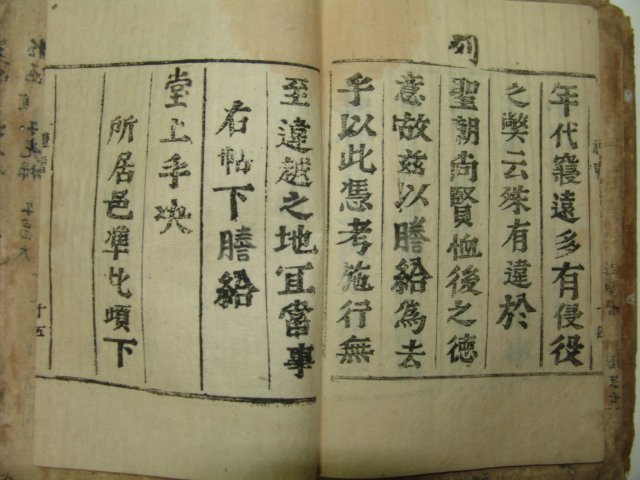 年代寢遠多有侵役
之獘云殊有違於
列
聖朝尚賢恤後之德
意故玆以謄給爲去
乎以此憑考施行無
至違越之地冝當事
右帖下謄給
堂上手决
所居邑準此頉下
十五